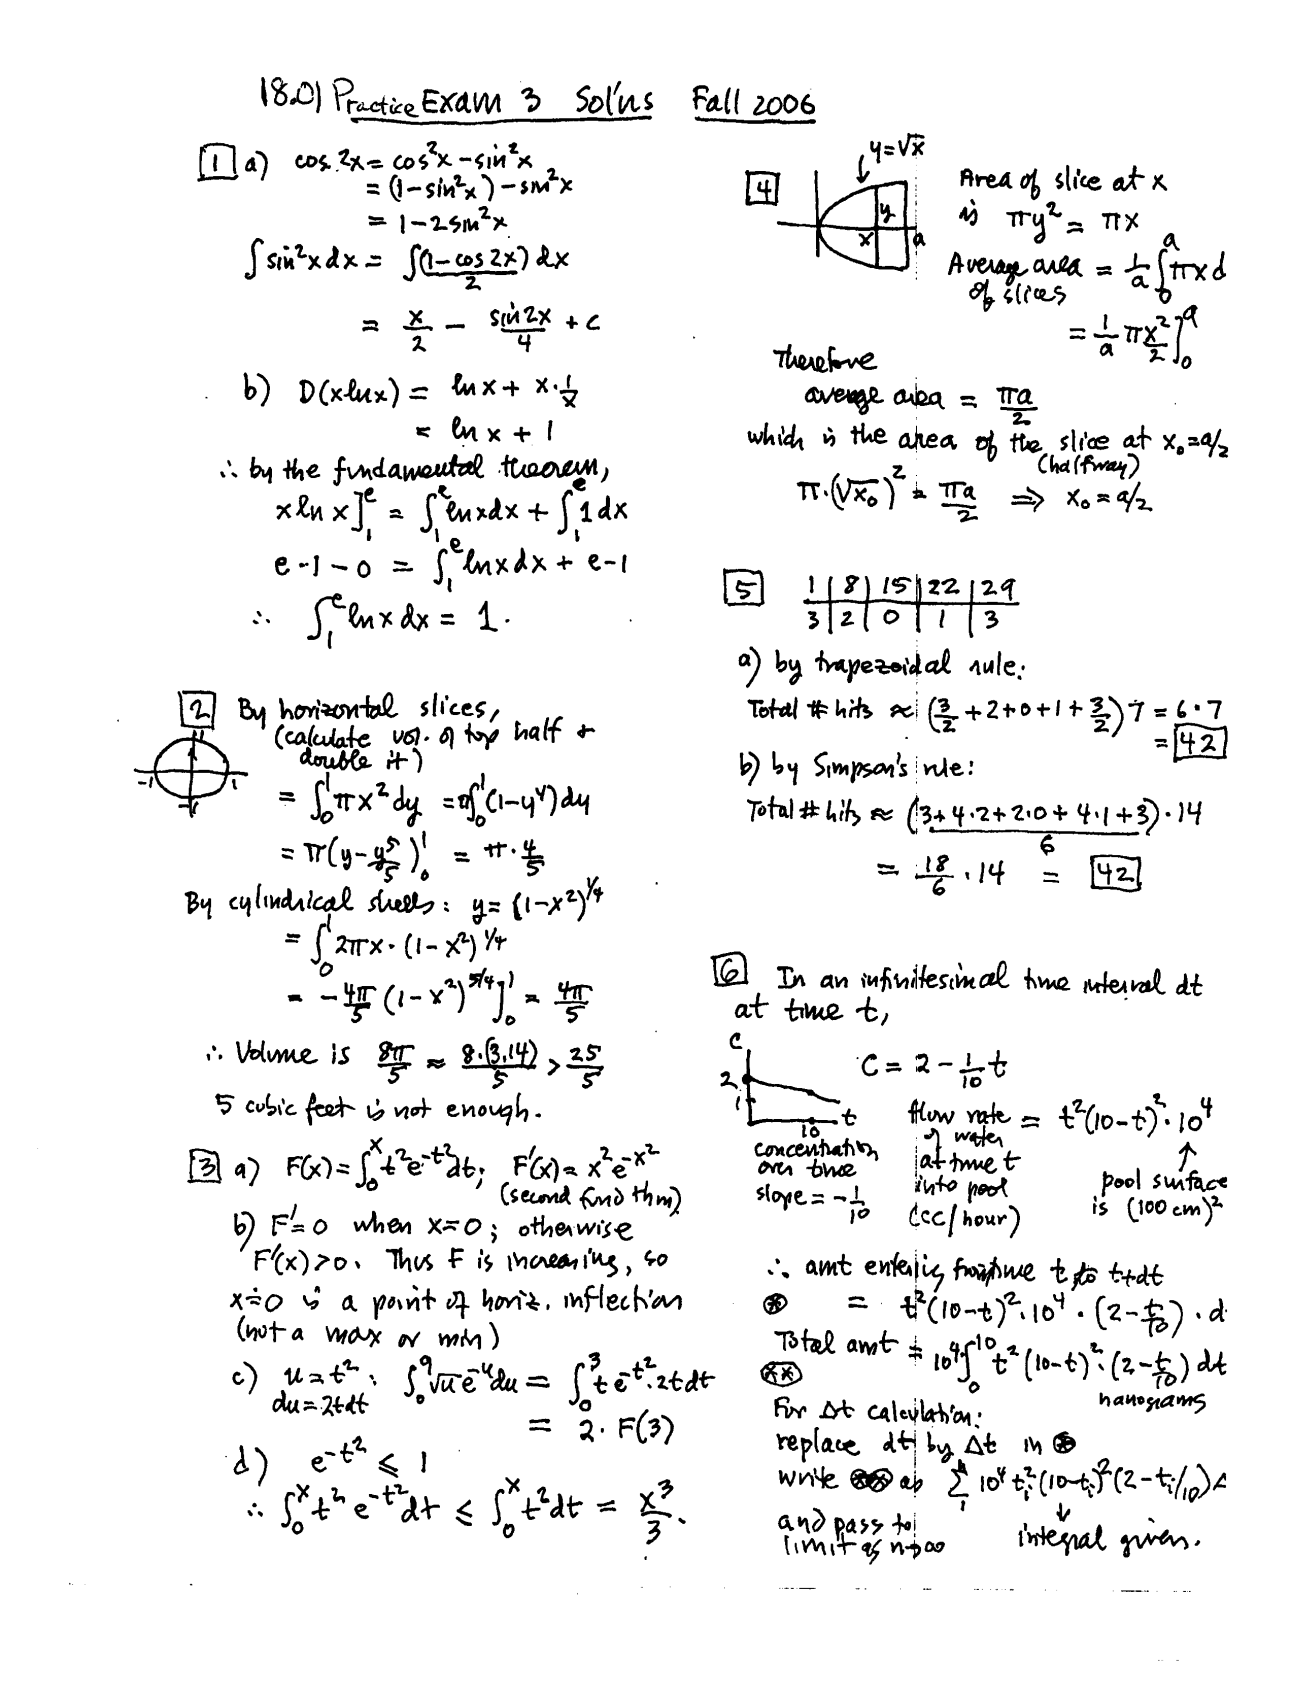 18.01 Practice Exam 3 Sol'ns Fall 2006
1 a) cos 2x = cos²x - sin²x
= (1 - sin²x) - sin²x
= 1 - 2sin²x
∫ sin²x dx = ∫ (1 - cos 2x)/2 dx
= x/2 - sin 2x/4 + c
b) D(x ln x) = ln x + x · 1/x
= ln x + 1
∴ by the fundamental theorem,
x ln x]₁ᵉ = ∫₁ᵉ ln x dx + ∫₁ᵉ 1 dx
e - 1 - 0 = ∫₁ᵉ ln x dx + e - 1
∴ ∫₁ᵉ ln x dx = 1.
2 By horizontal slices,
(calculate vol. of top half &
double it)
-1 1 1 -1
= ∫₀¹ πx² dy = π∫₀¹ (1 - y⁴) dy
= π(y - y⁵/5)₀¹ = π · 4/5
By cylindrical shells: y = (1 - x²)^¼
= ∫₀¹ 2πx · (1 - x²)^¼
= -4π/5 (1 - x²)^5/4]₀¹ = 4π/5
∴ Volume is 8π/5 ≈ 8·(3.14)/5 > 25/5
5 cubic feet is not enough.
3 a) F(x) = ∫₀ˣ t²e^-t² dt; F'(x) = x²e^-x²
(second fund thm)
b) F' = 0 when x = 0; otherwise
F'(x) > 0. Thus F is increasing, so
x = 0 is a point of horiz. inflection
(not a max or min)
c) u = t²; ∫₀⁹ √u e^-u du = ∫₀³ t e^-t² · 2t dt
du = 2t dt
= 2 · F(3)
d) e^-t² ≤ 1
∴ ∫₀ˣ t² e^-t² dt ≤ ∫₀ˣ t² dt = x³/3.
4 y = √x
y
x a
Area of slice at x
is πy² = πx
Average area = 1/a ∫₀ᵃ πx d
of slices
= 1/a πx²/2]₀ᵃ
Therefore
average area = πa/2
which is the area of the slice at x₀ = a/2
(halfway)
π·(√x₀)² = πa/2 ⇒ x₀ = a/2
5 1 | 8 | 15 | 22 | 29
3 | 2 | 0 | 1 | 3
a) by trapezoidal rule:
Total # hits ≈ (3/2 + 2 + 0 + 1 + 3/2) 7 = 6·7
= 42
b) by Simpson's rule:
Total # hits ≈ (3 + 4·2 + 2·0 + 4·1 + 3)/6 · 14
= 18/6 · 14 = 42
6 In an infinitesimal time interval dt
at time t,
C
2
1
10 t
concentration
over time
slope = -1/10
C = 2 - 1/10 t
flow rate = t²(10-t)²·10⁴
of water
at time t
into pool
(cc/hour)
↑
pool surface
is (100 cm)²
∴ amt entering from time t to t+dt
⊛ = t²(10-t)²·10⁴ · (2 - t/10) · d
Total amt = 10⁴∫₀¹⁰ t²(10-t)²·(2 - t/10) dt
(**) nanograms
For Δt calculation:
replace dt by Δt in ⊛
write (**) as Σ₁ⁿ 10⁴ tᵢ²(10-tᵢ)²(2 - tᵢ/10)Δ
and pass to
limit as n→∞
↓
integral given.